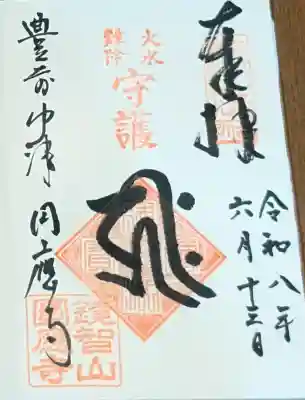 奉拝
令和八年
六月十三日
火水
難除
守護
豊前中津 円應寺
鏡智山
圓應寺